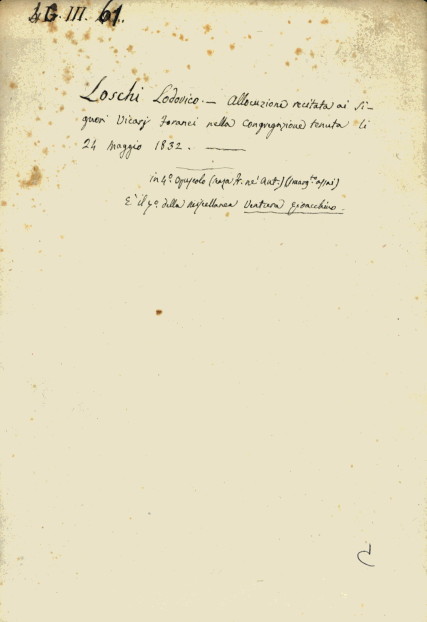 4G. III. 61.
Loschi Lodovico. — Allocuzione recitata ai Si-
gnori Vicarj Foranei nella Congregazione tenuta li
24 Maggio 1832. —
in 4º. Opuscolo
E' il 7º. della Miscellanea Ventura Gioacchino.